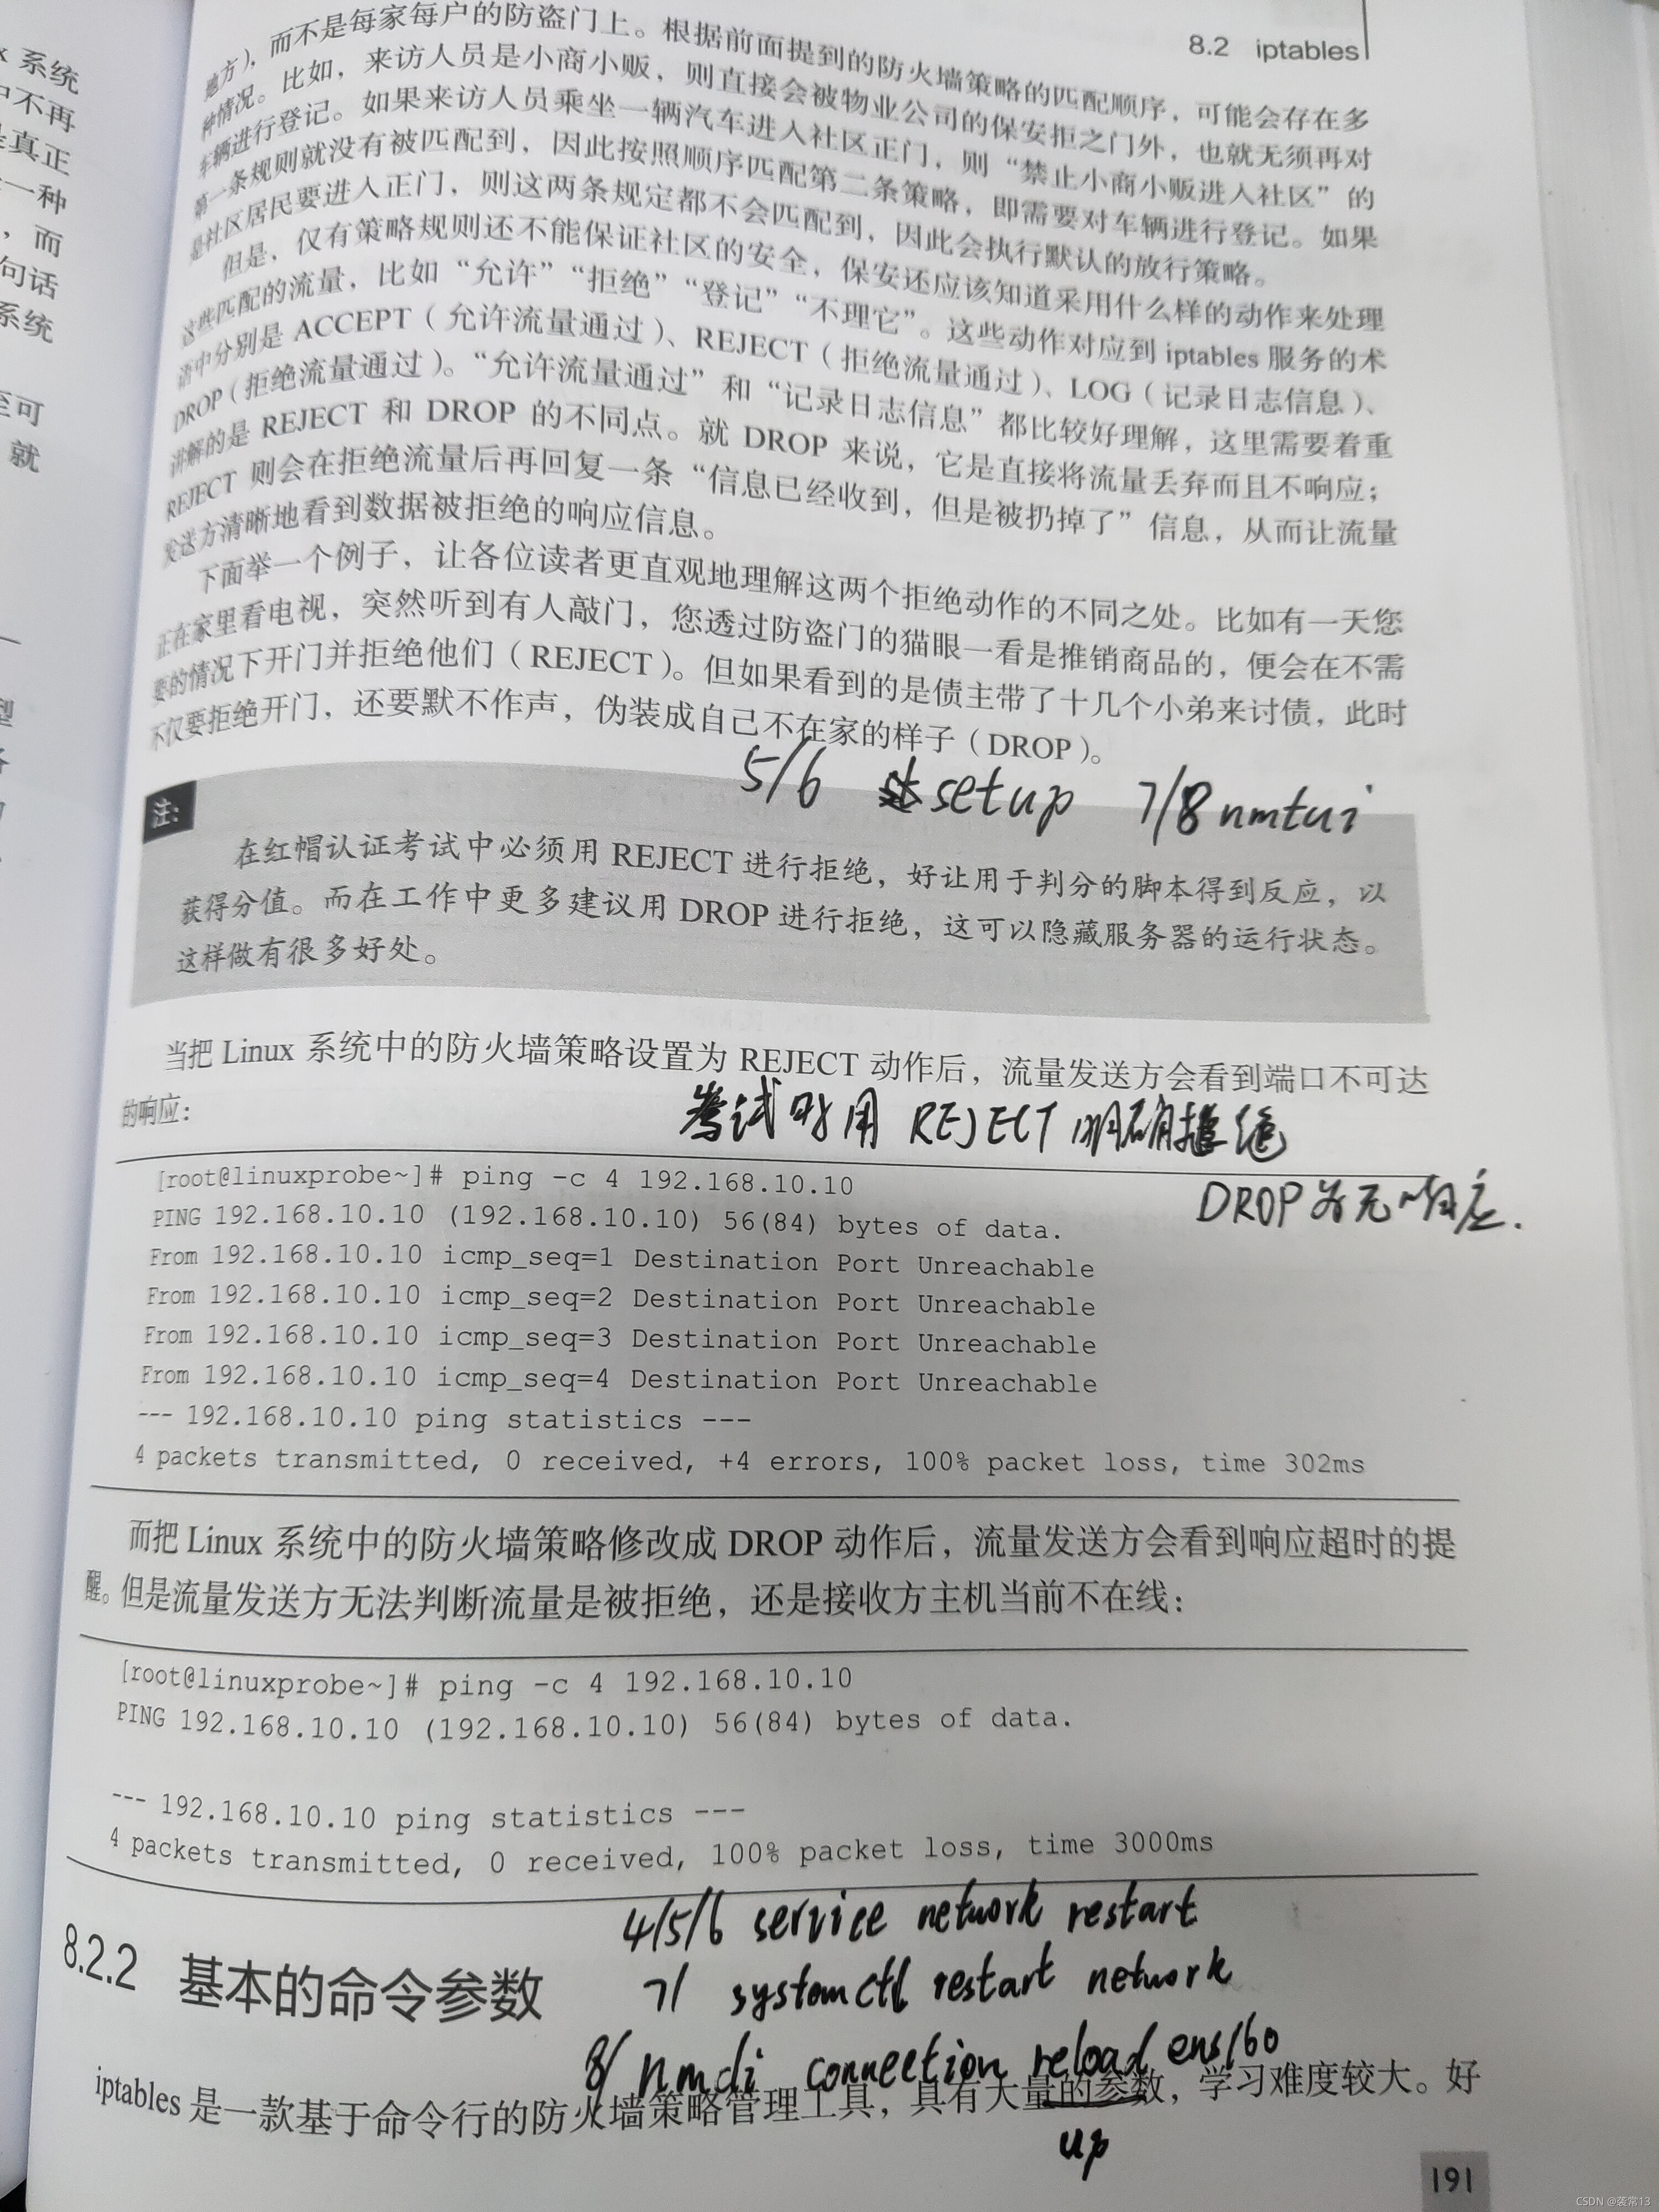 8.2 iptables
地方），而不是每家每户的防盗门上。根据前面提到的防火墙策略的匹配顺序，可能会存在多
种情况。比如，来访人员是小商小贩，则直接会被物业公司的保安拒之门外，也就无须再对
车辆进行登记。如果来访人员乘坐一辆汽车进入社区正门，则“禁止小商小贩进入社区”的
第一条规则就没有被匹配到，因此按照顺序匹配第二条策略，即需要对车辆进行登记。如果
是社区居民要进入正门，则这两条规定都不会匹配到，因此会执行默认的放行策略。
但是，仅有策略规则还不能保证社区的安全，保安还应该知道采用什么样的动作来处理
这些匹配的流量，比如“允许”“拒绝”“登记”“不理它”。这些动作对应到 iptables 服务的术
语中分别是 ACCEPT（允许流量通过）、REJECT（拒绝流量通过）、LOG（记录日志信息）、
DROP（拒绝流量通过）。“允许流量通过”和“记录日志信息”都比较好理解，这里需要着重
讲解的是 REJECT 和 DROP 的不同点。就 DROP 来说，它是直接将流量丢弃而且不响应；
REJECT 则会在拒绝流量后再回复一条“信息已经收到，但是被扔掉了”信息，从而让流量
发送方清晰地看到数据被拒绝的响应信息。
下面举一个例子，让各位读者更直观地理解这两个拒绝动作的不同之处。比如有一天您
正在家里看电视，突然听到有人敲门，您透过防盗门的猫眼一看是推销商品的，便会在不需
要的情况下开门并拒绝他们（REJECT）。但如果看到的是债主带了十几个小弟来讨债，此时
不仅要拒绝开门，还要默不作声，伪装成自己不在家的样子（DROP）。
5/6 setup 7/8 nmtui
注：
在红帽认证考试中必须用 REJECT 进行拒绝，好让用于判分的脚本得到反应，以
获得分值。而在工作中更多建议用 DROP 进行拒绝，这可以隐藏服务器的运行状态。
这样做有很多好处。
当把 Linux 系统中的防火墙策略设置为 REJECT 动作后，流量发送方会看到端口不可达
的响应：
考试时用 REJECT 明确拒绝
[root@linuxprobe~]# ping -c 4 192.168.10.10
DROP为无响应.
PING 192.168.10.10 (192.168.10.10) 56(84) bytes of data.
From 192.168.10.10 icmp_seq=1 Destination Port Unreachable
From 192.168.10.10 icmp_seq=2 Destination Port Unreachable
From 192.168.10.10 icmp_seq=3 Destination Port Unreachable
From 192.168.10.10 icmp_seq=4 Destination Port Unreachable
--- 192.168.10.10 ping statistics ---
4 packets transmitted, 0 received, +4 errors, 100% packet loss, time 302ms
而把 Linux 系统中的防火墙策略修改成 DROP 动作后，流量发送方会看到响应超时的提
醒。但是流量发送方无法判断流量是被拒绝，还是接收方主机当前不在线：
[root@linuxprobe~]# ping -c 4 192.168.10.10
PING 192.168.10.10 (192.168.10.10) 56(84) bytes of data.
--- 192.168.10.10 ping statistics ---
4 packets transmitted, 0 received, 100% packet loss, time 3000ms
4/5/6 service network restart
8.2.2 基本的命令参数
7/ systemctl restart network
8/ nmcli connection reload ens160
iptables 是一款基于命令行的防火墙策略管理工具，具有大量的参数，学习难度较大。好
up
191
CSDN @袭常13